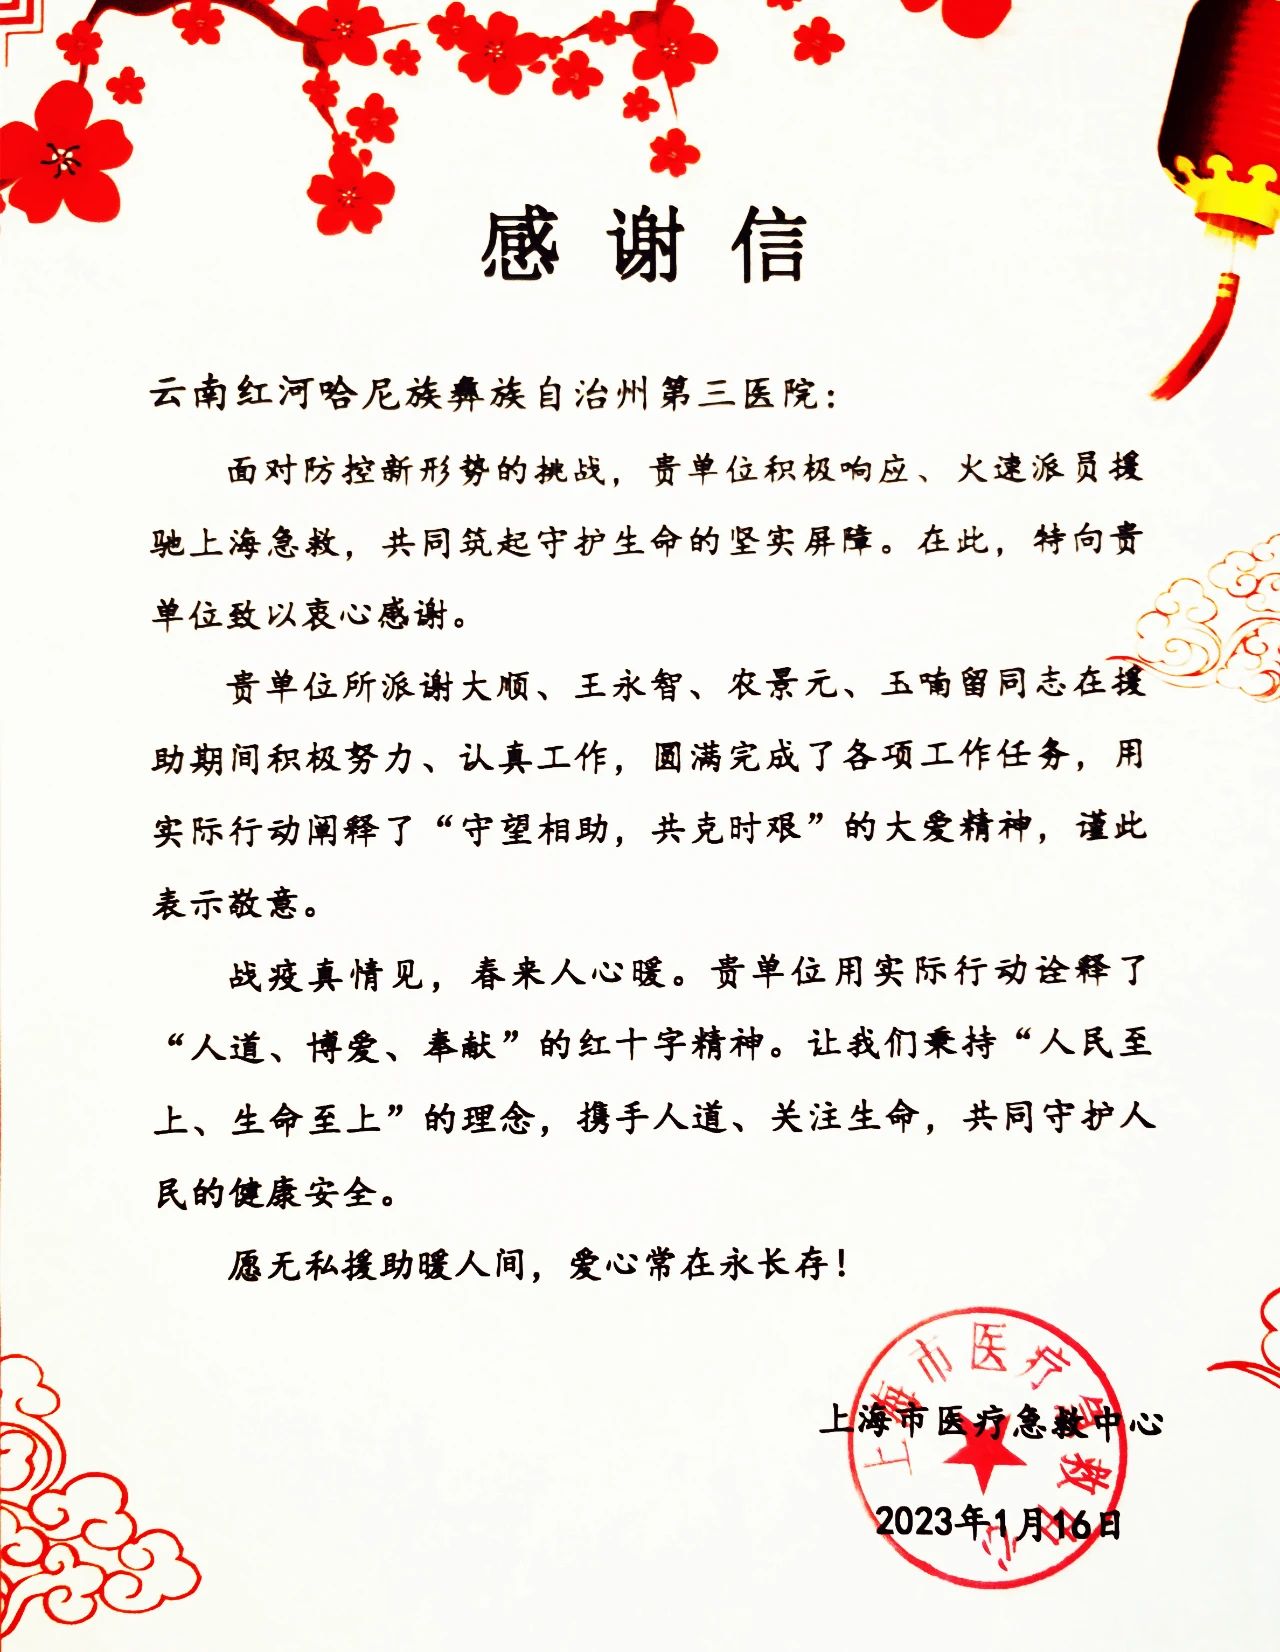 感谢信
云南红河哈尼族彝族自治州第三医院：
面对防控新形势的挑战，贵单位积极响应、火速派员援
驰上海急救，共同筑起守护生命的坚实屏障。在此，特向贵
单位致以衷心感谢。
贵单位所派谢大顺、王永智、农景元、玉喃留同志在援
助期间积极努力、认真工作，圆满完成了各项工作任务，用
实际行动阐释了“守望相助，共克时艰”的大爱精神，谨此
表示敬意。
战疫真情见，春来人心暖。贵单位用实际行动诠释了
“人道、博爱、奉献”的红十字精神。让我们秉持“人民至
上、生命至上”的理念，携手人道、关注生命，共同守护人
民的健康安全。
愿无私援助暖人间，爱心常在永长存！
上海市医疗急救中心
上海市医疗急救中心
2023年1月16日